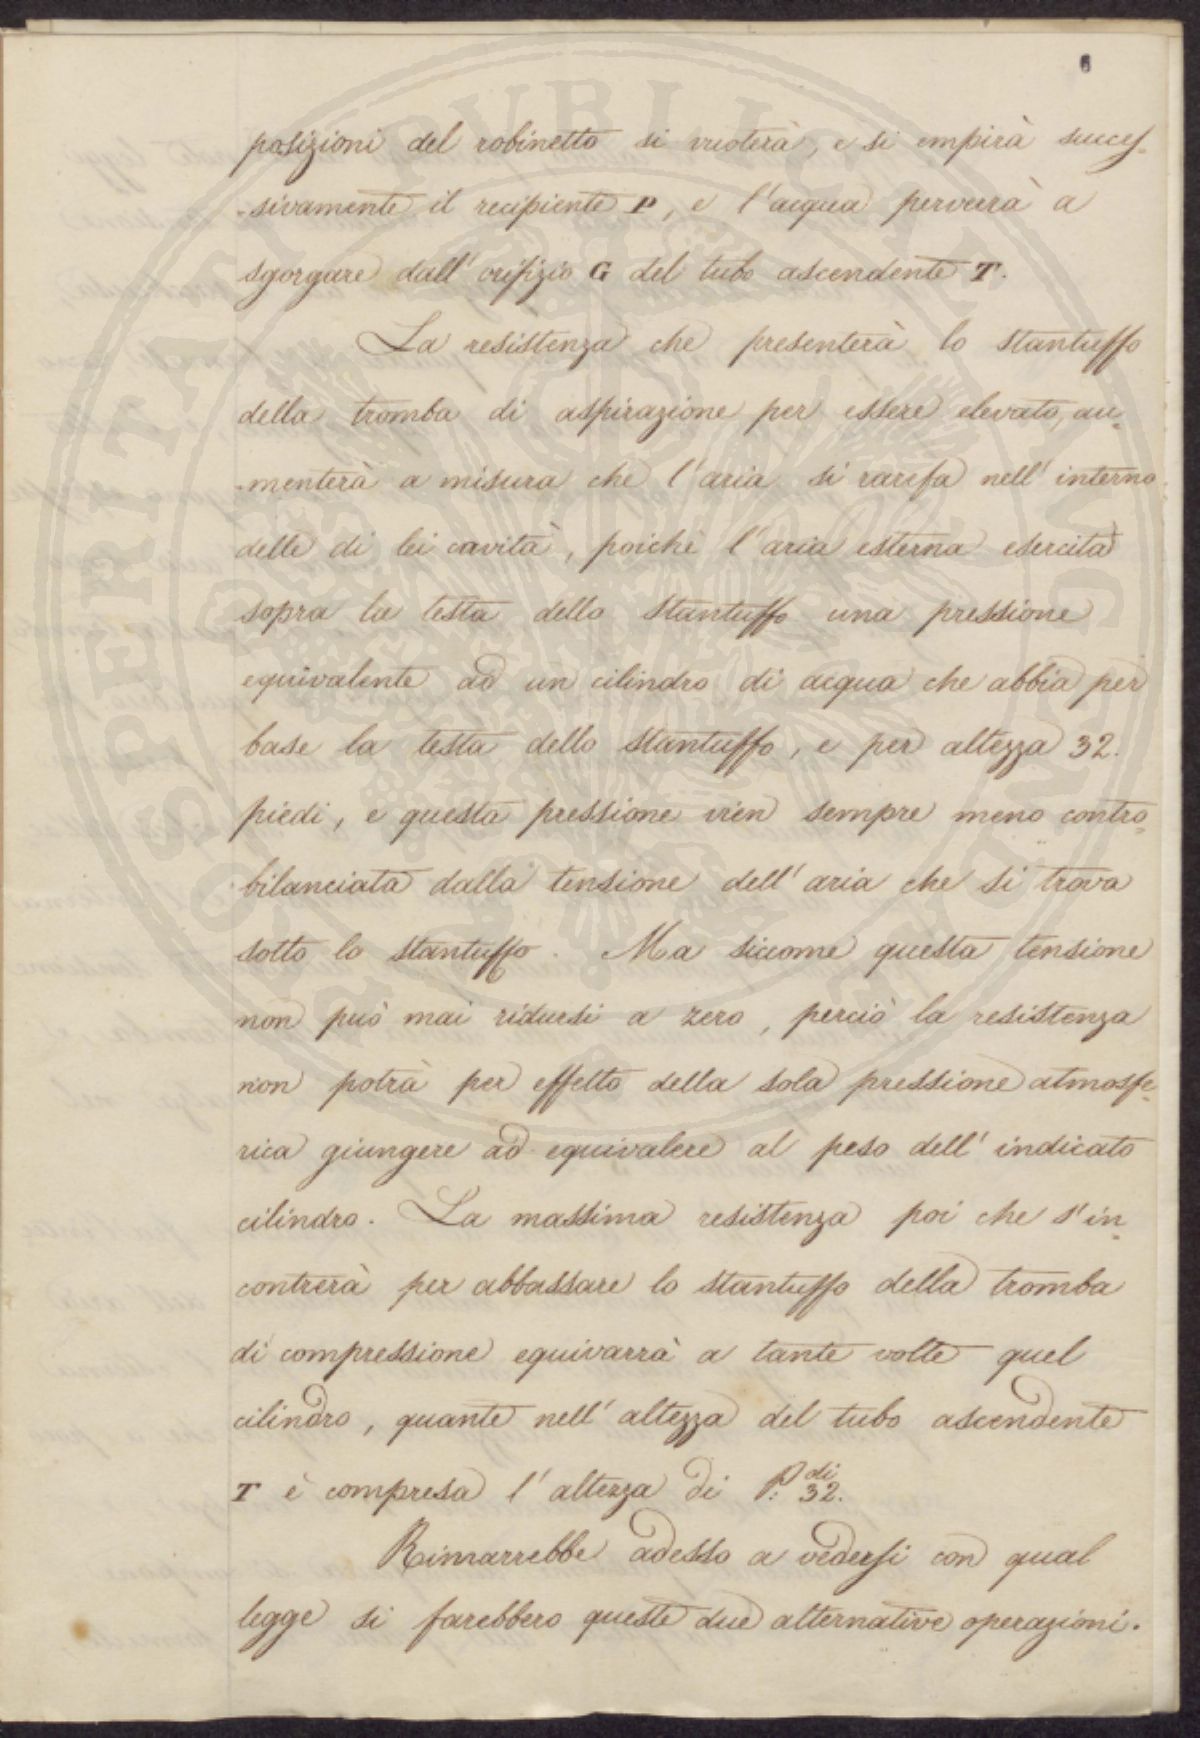 6
posizioni del robinetto si vuoterà, e si empirà succes-
-sivamente il recipiente P, e l'acqua perverrà a
sgorgare dall'orifizio G del tubo ascendente T.
La resistenza che presenterà lo stantuffo
della tromba di aspirazione per essere elevato, au-
-menterà a misura che l'aria si rarefa nell'interno
delle di lei cavità, poichè l'aria esterna esercita
sopra la testa dello stantuffo una pressione
equivalente ad un cilindro di acqua che abbia per
base la testa dello stantuffo, e per altezza 32.
piedi, e questa pressione vien sempre meno contro-
bilanciata dalla tensione dell'aria che si trova
sotto lo stantuffo. Ma siccome questa tensione
non può mai ridursi a zero, perciò la resistenza
non potrà per effetto della sola pressione atmosfe-
rica giungere ad equivalere al peso dell'indicato
cilindro. La massima resistenza poi che s'in-
contrerà per abbassare lo stantuffo della tromba
di compressione equivarrà a tante volte quel
cilindro, quante nell'altezza del tubo ascendente
T è compresa l'altezza di P.di 32.
Rimarrebbe adesso a vedersi con qual
legge si farebbero queste due alternative operazioni.
SOSPERITATI PVBLICAE AVGENDAE